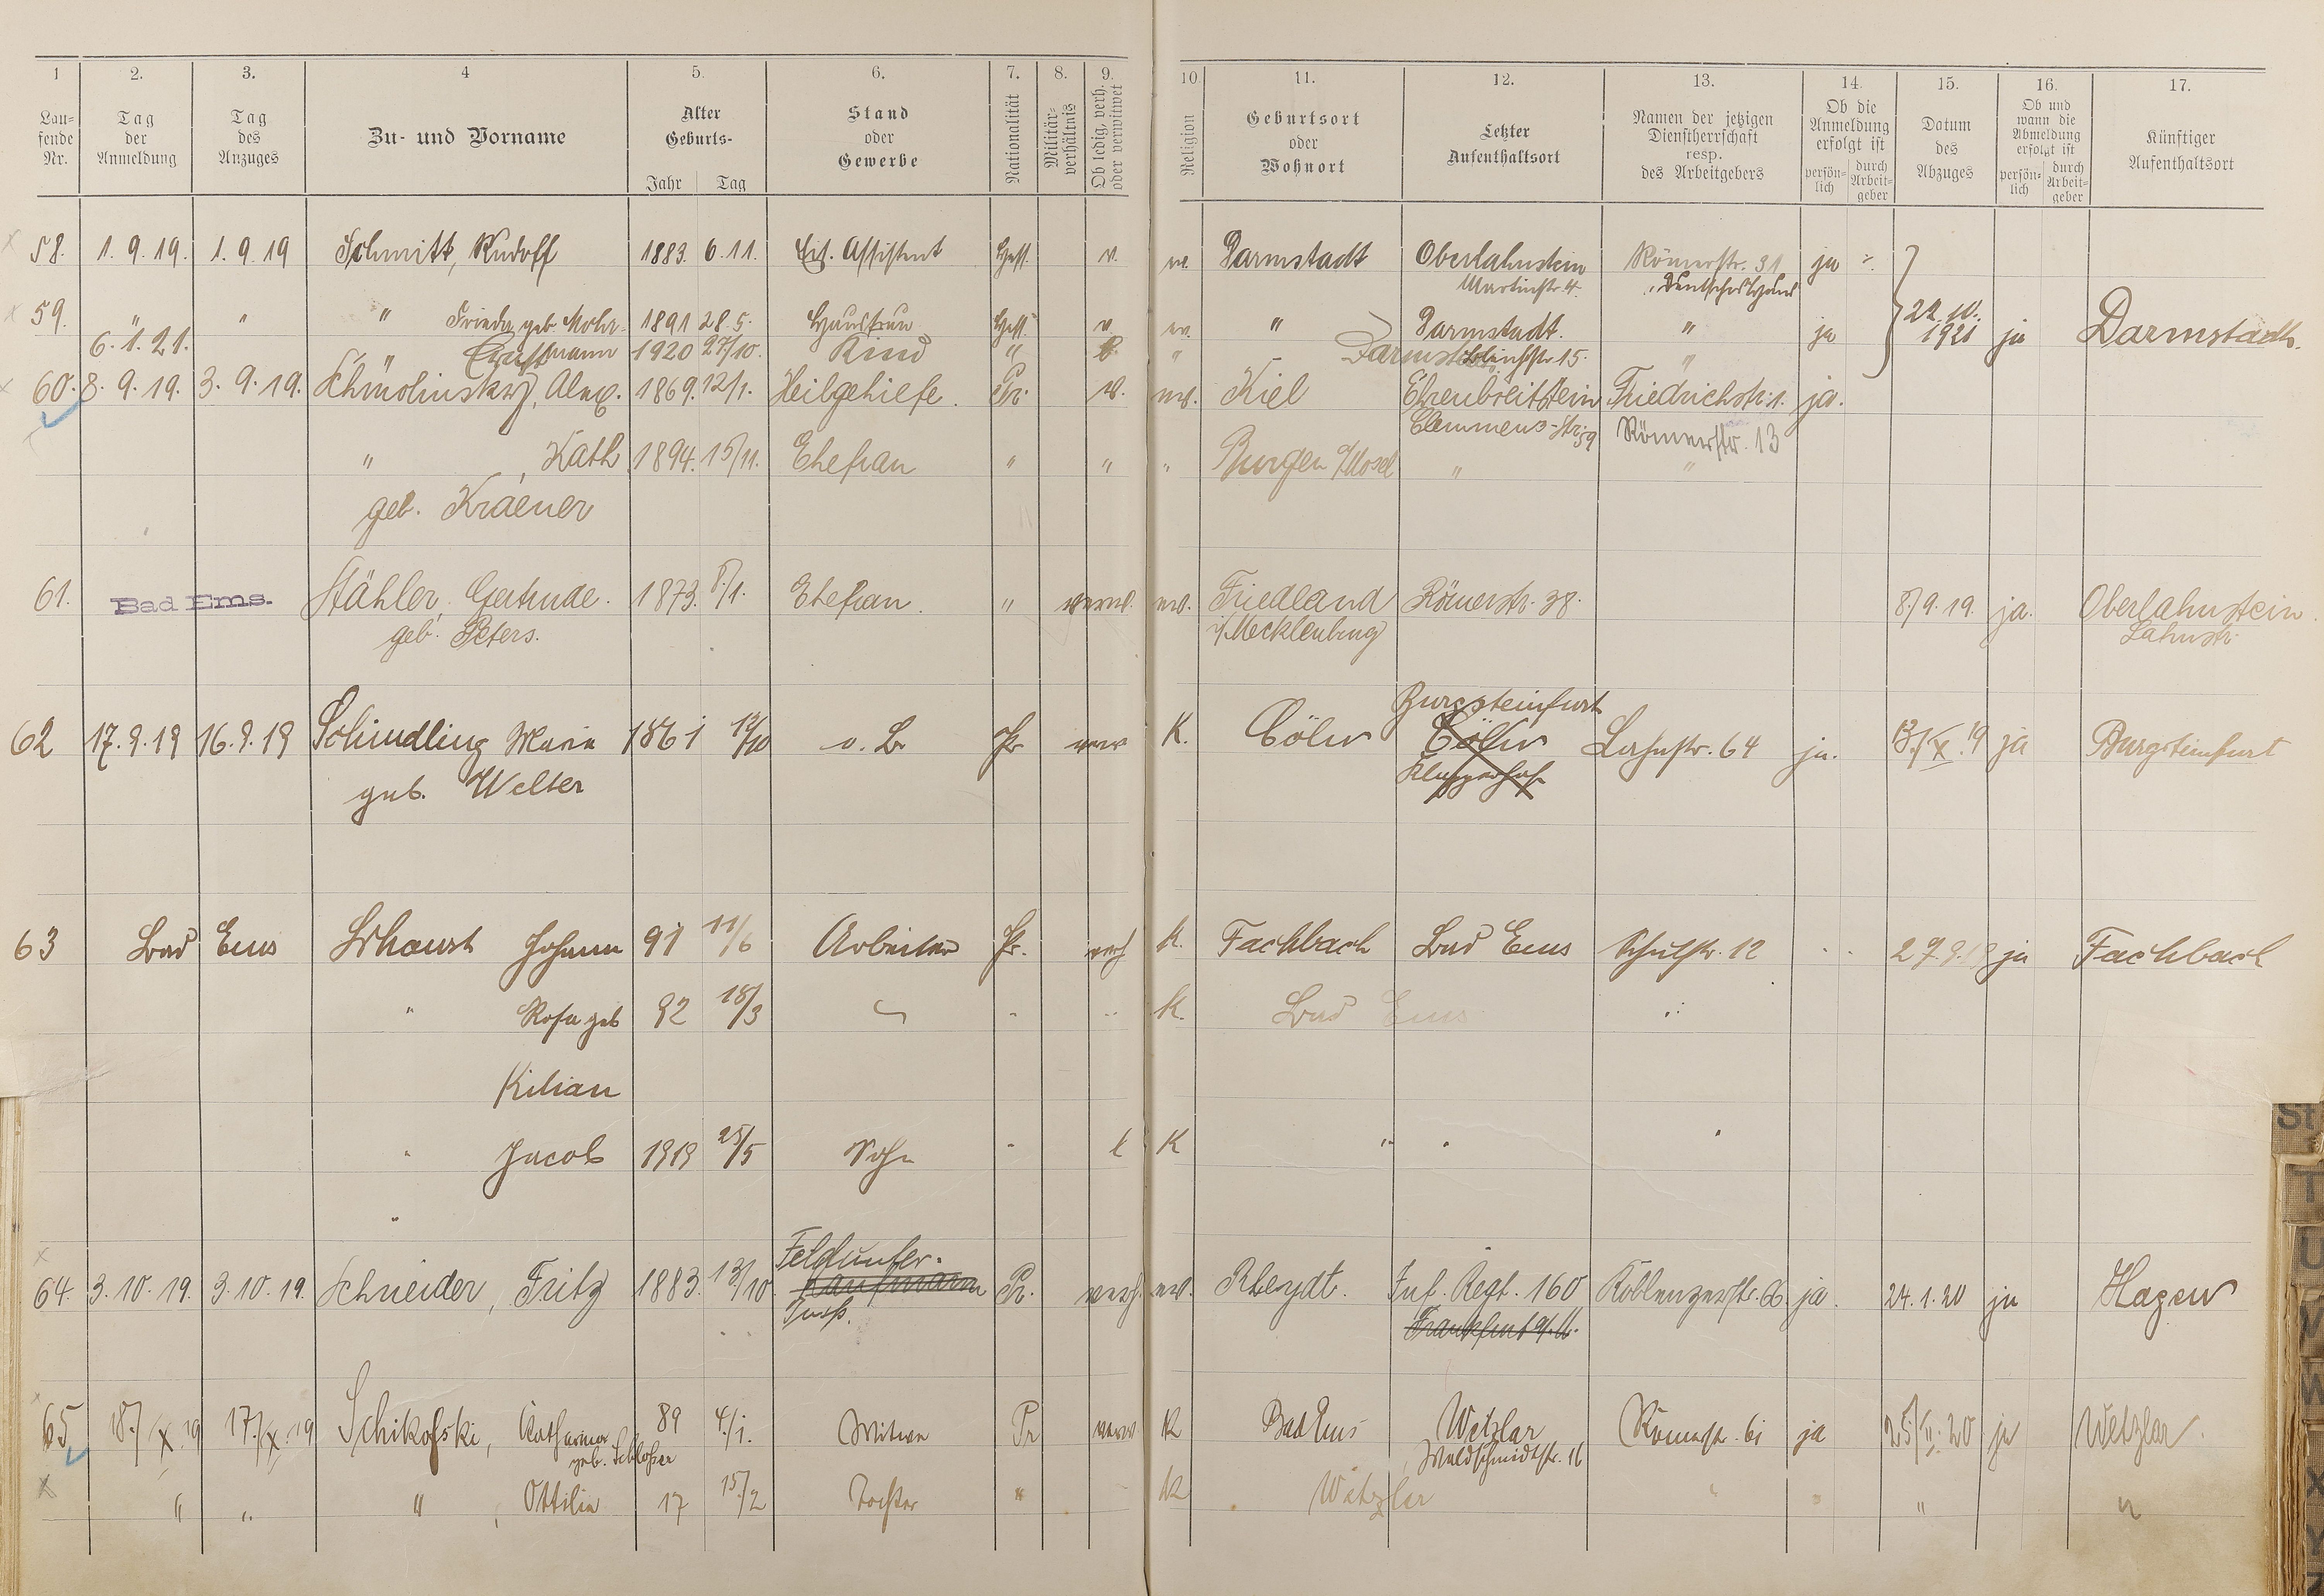 1 2. 3. 4 5. 6. 7. 8. 9. 10. 11. 12. 13. 14. 15. 16. 17.
Lau-
fende
Nr.
Tag
der
Anmeldung
Tag
des
Anzuges
Zu- und Vorname
Alter
Geburts-
Jahr Tag
Stand
oder
Gewerbe
Nationalität
Militär-
verhältnis
Ob ledig, verh.
oder verwitwet
Religion
Geburtsort
oder
Wohnort
Letzter
Aufenthaltsort
Namen der jetzigen
Dienstherrschaft
resp.
des Arbeitgebers
Ob die
Anmeldung
erfolgt ist
persön-
lich
durch
Arbeit-
geber
Datum
des
Abzuges
Ob und
wann die
Abmeldung
erfolgt ist
persön-
lich
durch
Arbeit-
geber
Künftiger
Aufenthaltsort
58. 1. 9. 19. 1. 9. 19 Schmitt, Rudolf 1883. 6.11. Assistent Hess. v. ev. Darmstadt Oberlahnstein Römerstr. 31 ja
Martinstr. 4.
59. " " " Frieda geb. Mohr 1891 28.5. Hausfrau Hess. v. ev. " Darmstadt. " ja 22.10. 1921 ja Darmstadt.
6.1.21. " 1920 27/10. Kind " " Darmstadt 15. "
60. 8. 9. 19. 3. 9. 19. Schmolinsky, Alex. 1869. 12/1. Heilgehilfe. Pr. v. ev. Kiel Ehrenbreitstein Friedrichstr. 1. ja.
Clemmens-Str. 59 Römerstr. 13
" , Kath 1894. 15/11. Ehefrau " " " Burgen /Mosel " "
geb. Kraener
61. Bad Ems. Stähler, Gertrude. 1873. 8/1. Ehefrau. " verw. ev. Friedland Römerstr. 38. 8./9. 19. ja. Oberlahnstein.
geb. Peters. i/Mecklenburg Lahnstr.
Burgsteinfurt
62 17. 9. 19 16. 9. 19 Schindling Maria 1861 12/10 o. B. Pr verw K. Cöln Cöln Lahnstr. 64 ja. 13./X. 19 ja Burgsteinfurt
geb. Welter
63 Bad Ems Johann 91 11/6 Arbeiter Pr. verh K. Fachbach Bad Ems Schulstr. 12 29.9.19 ja Fachbach
" Rosa geb 92 18/3 " " K. Bad Ems
Kilian
" Jacob 1919 25/5 Sohn " l K " " "
Feldunter-
64. 3. 10. 19. 3. 10. 19. Schneider, Fritz 1883. 13/10. Kaufmann Pr. verh. ev. Rheydt. Inf. Regt. 160 Koblenzerstr. ja. 24. 1. 20 ja Hagen
Insp. Frankfurt a. M.
65 18./X. 19 17./X. 19 Schikofski, Catharina 89 4./1. Witwe Pr verw. K Bad Ems Wetzlar Römerstr. 61 ja 25./II. 20 ja Wetzlar.
geb. Schlosser Waldschmidtstr. 16
" " " , Ottilie 17 15./2 Tochter " K Wetzlar " " " "